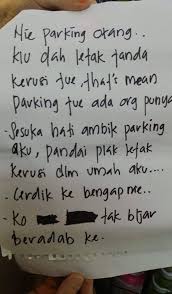 Nie parking orang..
klu dah letak tanda
kerusi tue, that's mean
parking tue ada org punya
- Sesuka hati ambik parking
aku, pandai plak letak
kerusi dlm umah aku....
- Cerdik ke bengap me..
- Ko tak bljar
beradab ke.